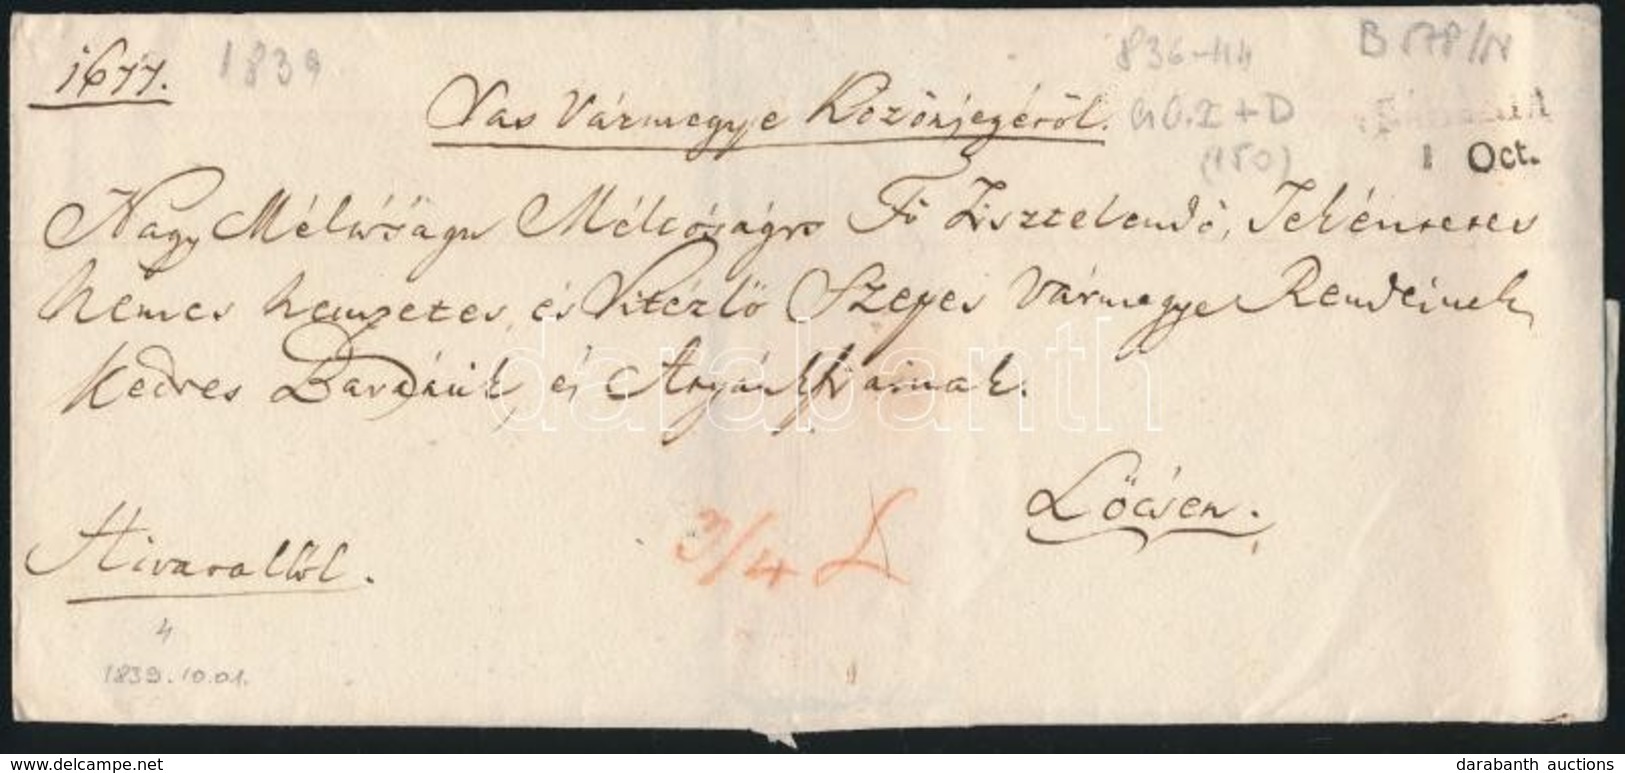 1677. 1839
836-44
B 578/N
Vas Vármegye Közönségéről.
G.O.I + D
(150)
1 Oct.
Nagy Méltóságu Méltóságos Fő Tisztelendő, Tekéntetes
Nemes Nemzetes, és Vitézlő Szepes Vármegye Rendeinek,
Kedves Baráink, és Atyánkfiainak.
Lőcsén.
Hivatalból.
3/4 L
4
1839.10.01.
darabanth
delcampe.net
darabanth auctions